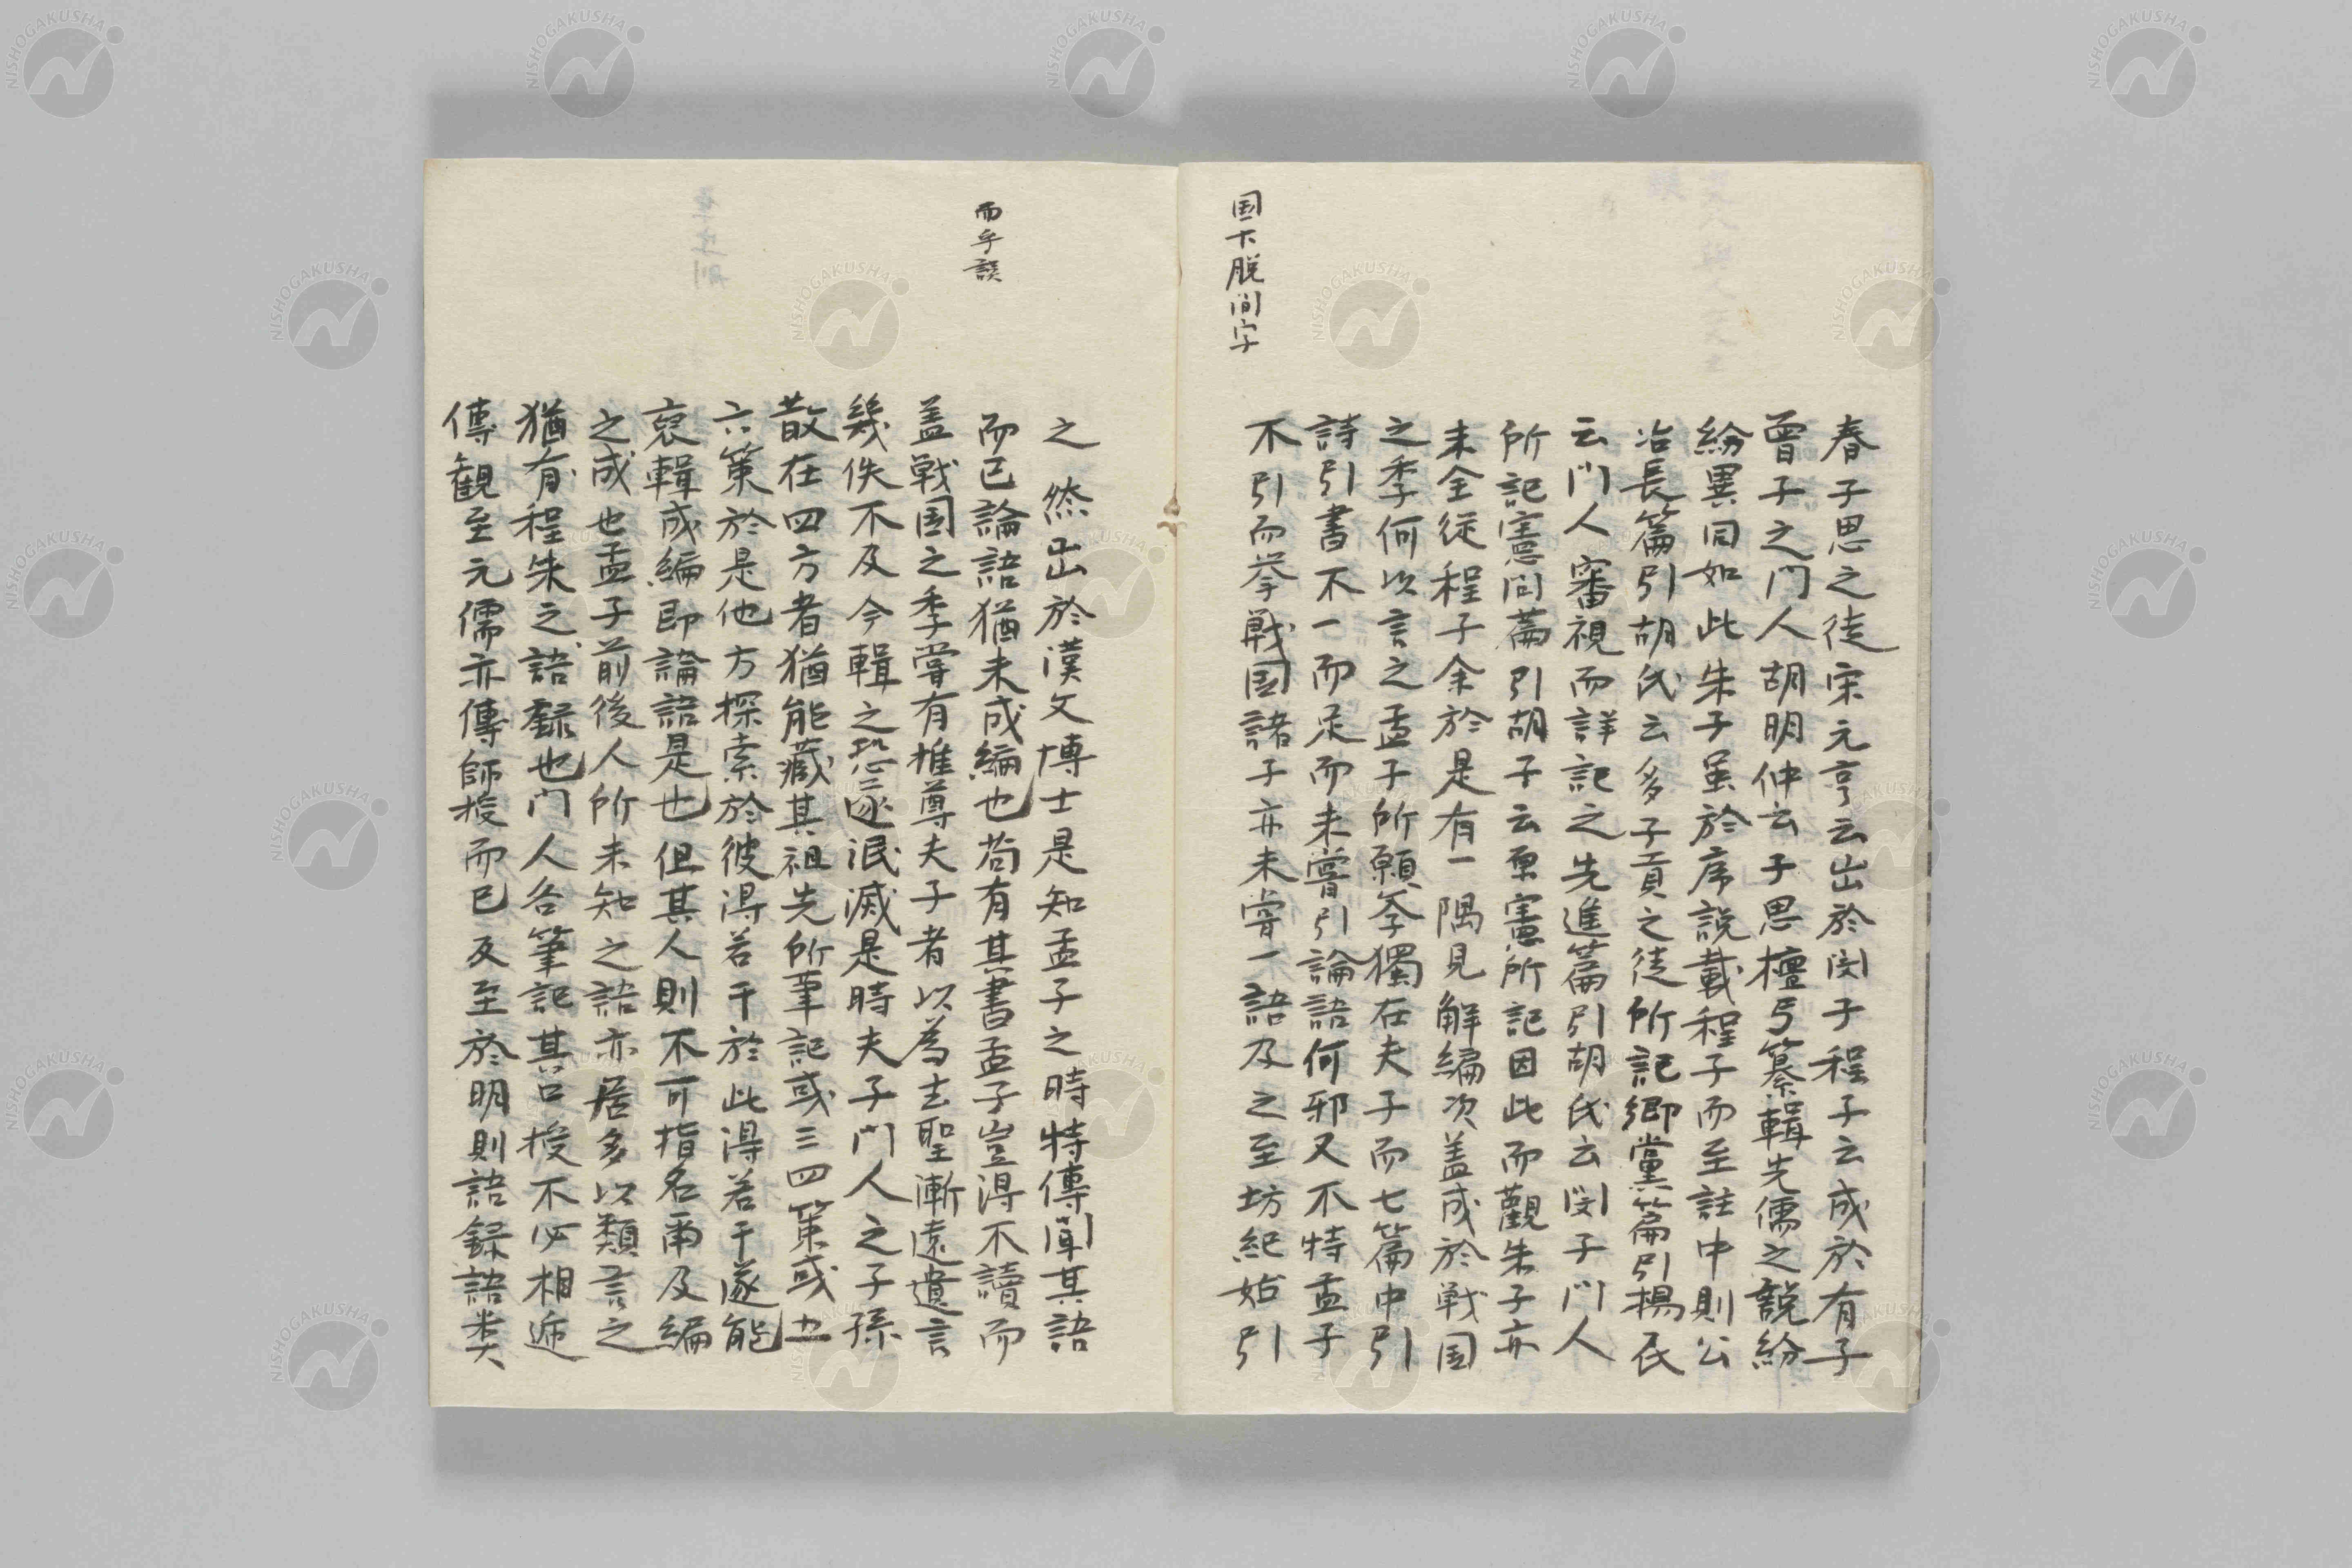 国下脱間字
春子思之徒宋元亨云出於閔子程子云成於有子
曽子之門人胡明仲云子思檀弓纂輯先儒之説紛
紛異同如此朱子虽於序説載程子而至註中則公
冶長篇引胡氏云多子貢之徒所記郷黨篇引楊氏
云門人審視而詳記之先進篇引胡氏云閔子門人
所記憲问篇引胡子云原憲所記因此而觀朱子亦
未全従程子余於是有一隅見解編次盖成於戦国
之季何以言之孟子所願斈獨在夫子而七篇中引
詩引書不一而足而未嘗引論語何邪又不特孟子
不引而挙戦国諸子亦未甞一語及之至坊紀始引
而乎誤
之然出於漢文博士是知孟子之時特傳聞其語
而已論語猶未成編也苟有其書孟子豈得不讀而
盖戦国之季甞有推尊夫子者以為去聖漸遠遺言
幾佚不及今輯之恐遂泯滅是時夫子門人之子孫
散在四方者猶能藏其祖先所筆記或三四策或五
六策於是他方探索於彼得若干於此得若干遂能
裒輯成編即論語是也但其人則不可指名甭及編
之成也孟子前後人所未知之語亦居多以類言之
猶有程朱之語録也門人各筆記其口授不必相逓
傳観至元儒亦傳師授而已及至於明則語録語类
NISHOGAKUSHA